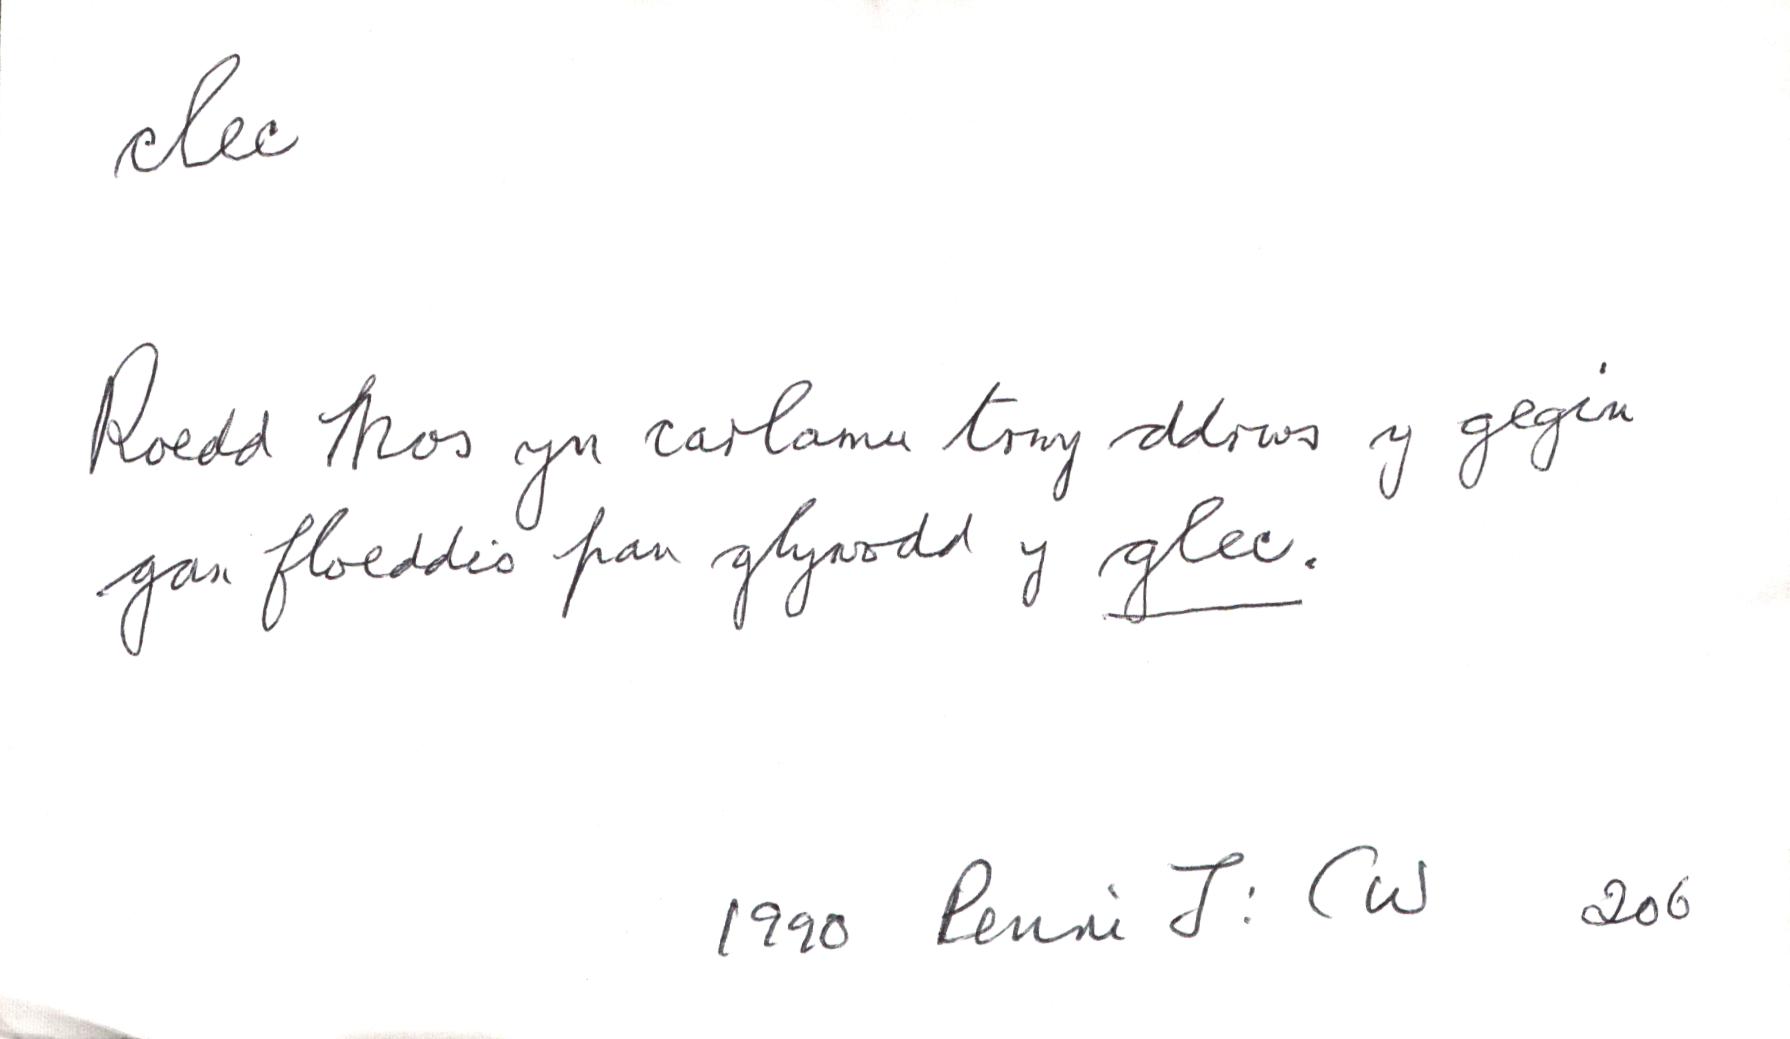 clec
Roedd Mos yn carlamu trwy ddrws y gegin
gan floeddio pan glywodd y glec.
1990 Rennie J: CW 206